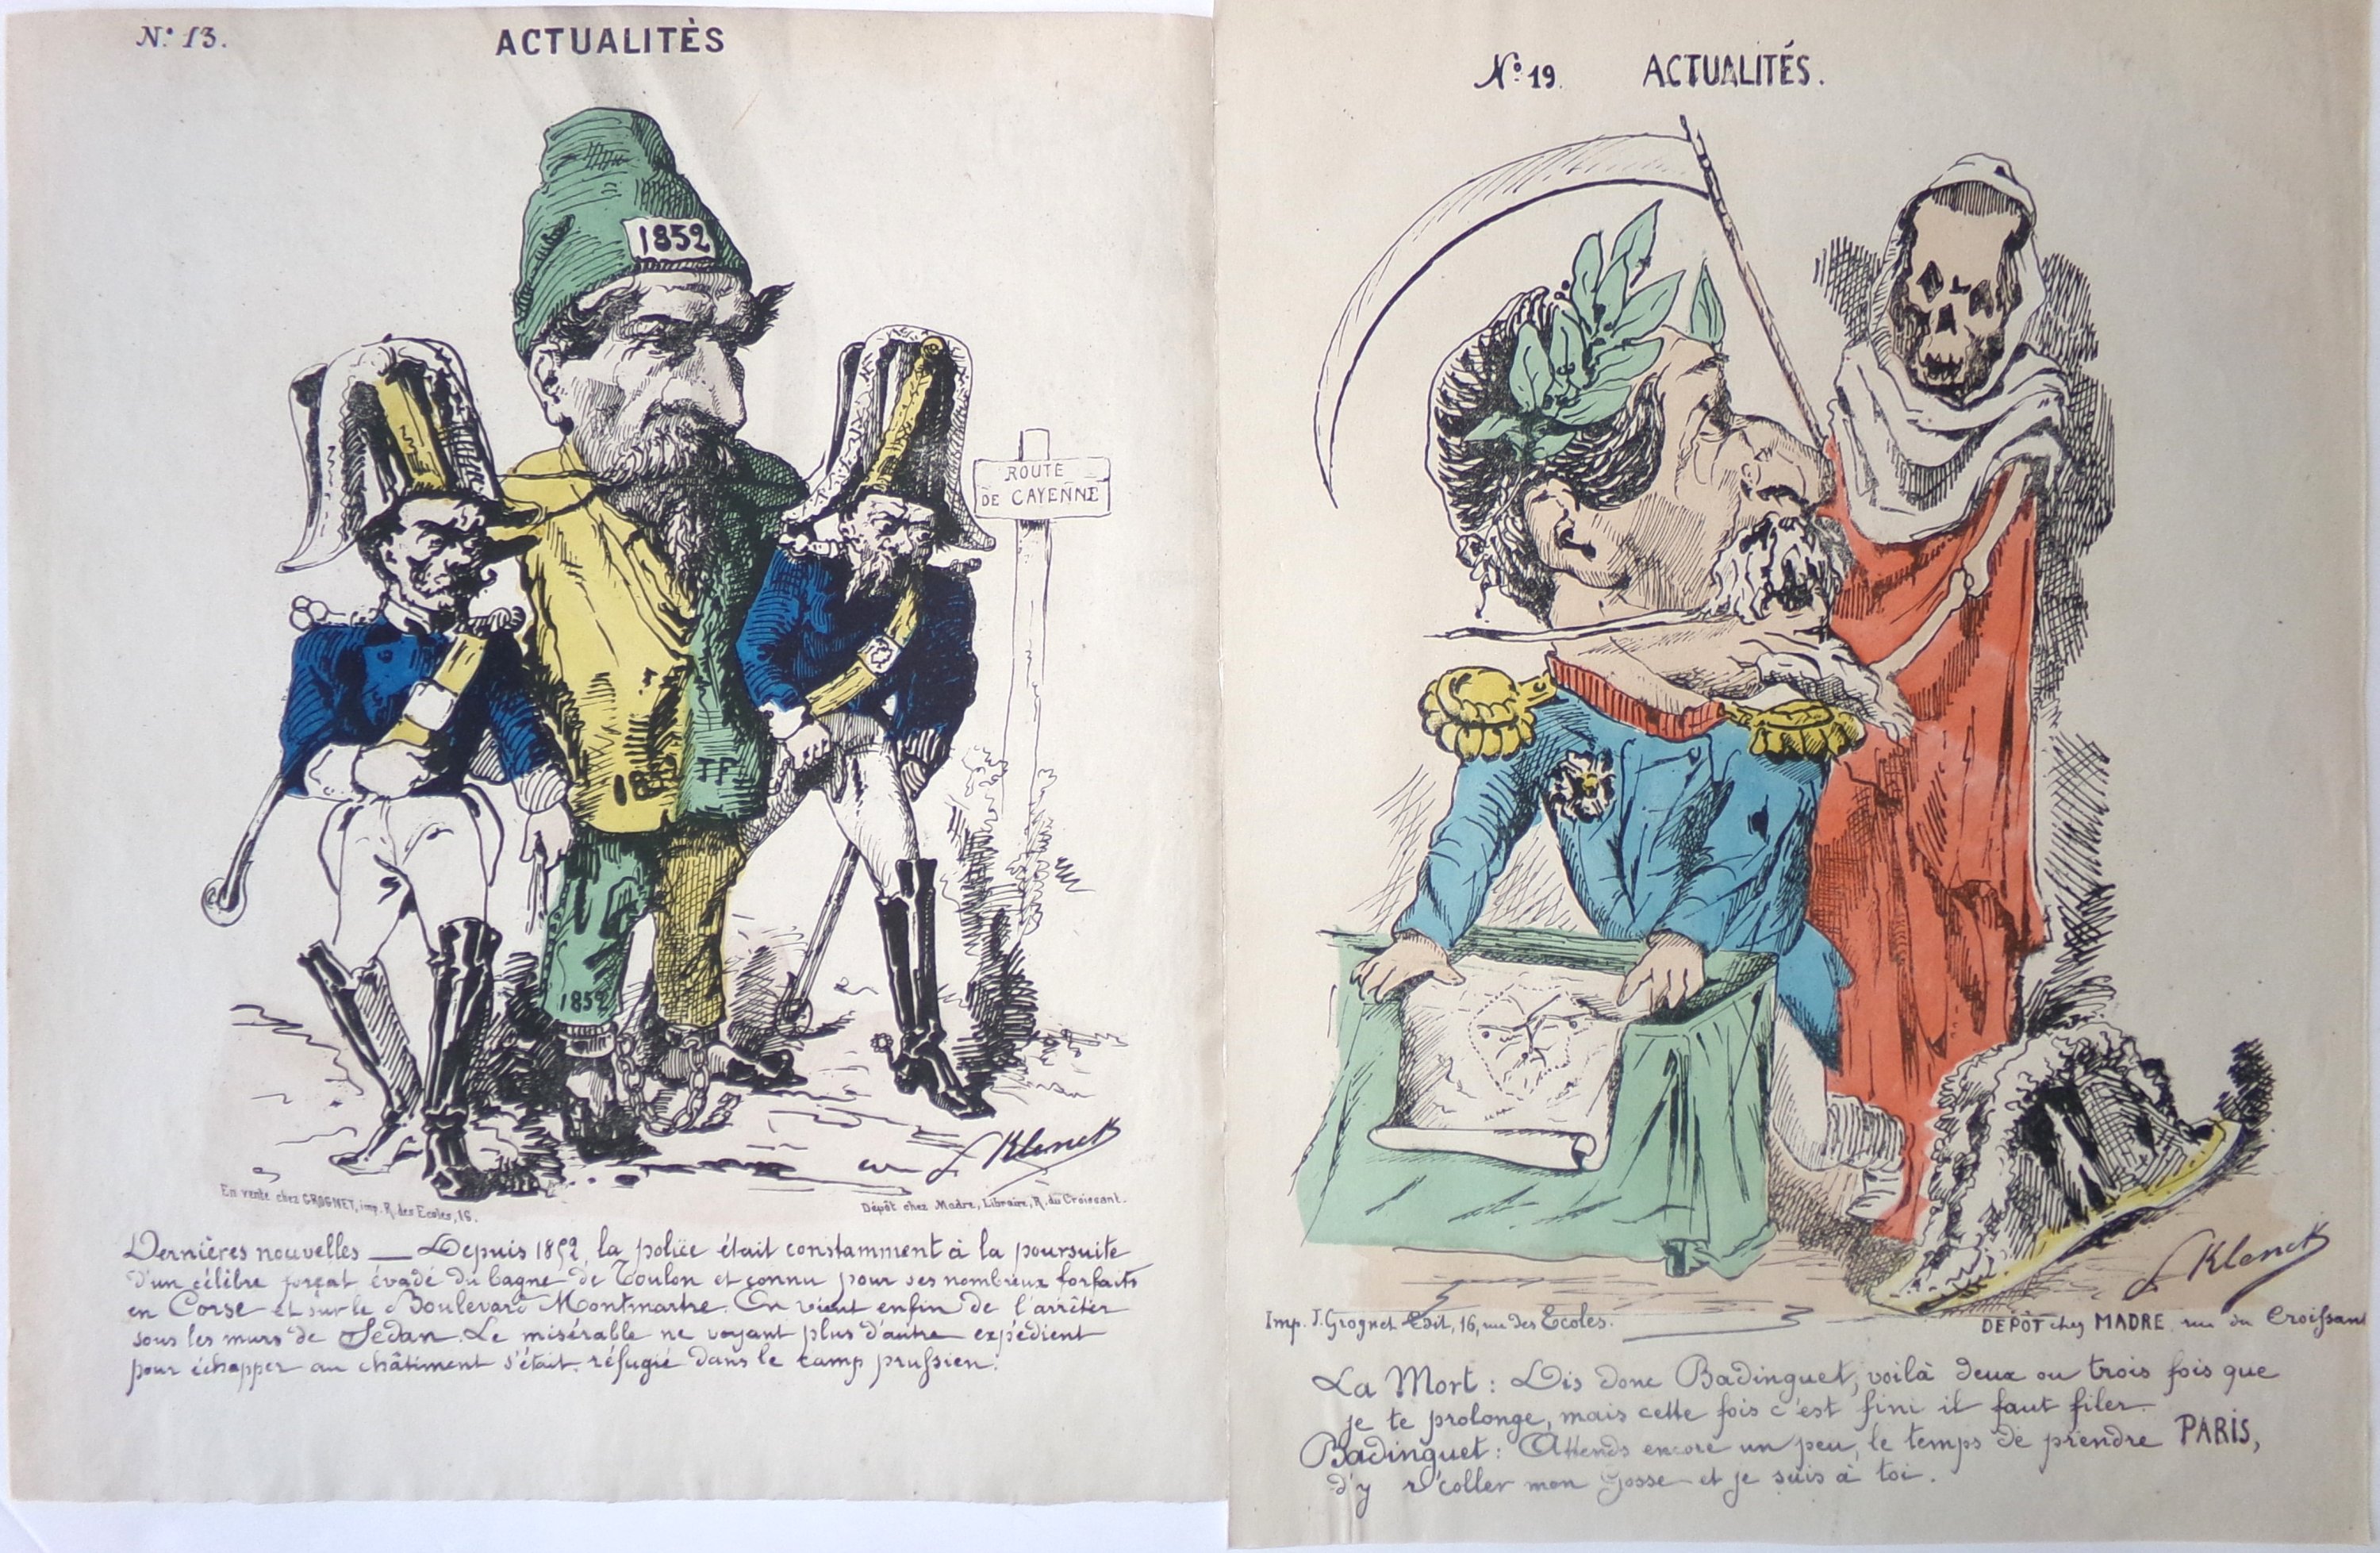 N.° 13.
ACTUALITÈS
1852
ROUTE
DE CAYENNE
185
TF
1852
Klenck
En vente chez GROGNET, imp. R. des Ecoles, 16.
Dépôt chez Madre, Libraire, R. du Croissant.
Dernières nouvelles — Depuis 1852, la police était constamment à la poursuite
d'un célèbre forçat évadé du bagne de Toulon et connu pour ses nombreux forfaits
en Corse et sur le Boulevard Montmartre. On vient enfin de l'arrêter
sous les murs de Sedan. Le misérable ne voyant plus d'autre expédient
pour échapper au châtiment s'était réfugié dans le camp prussien.
N.° 19.
ACTUALITÉS.
Klenck
Imp. J. Grognet Edit, 16, rue des Ecoles.
DÉPÔT chez MADRE rue du Croissant
La Mort : Dis donc Badinguet, voilà deux ou trois fois que
je te prolonge, mais cette fois c'est fini il faut filer.
Badinguet : Attends encore un peu, le temps de prendre PARIS,
d'y r'coller mon Gosse et je suis à toi.